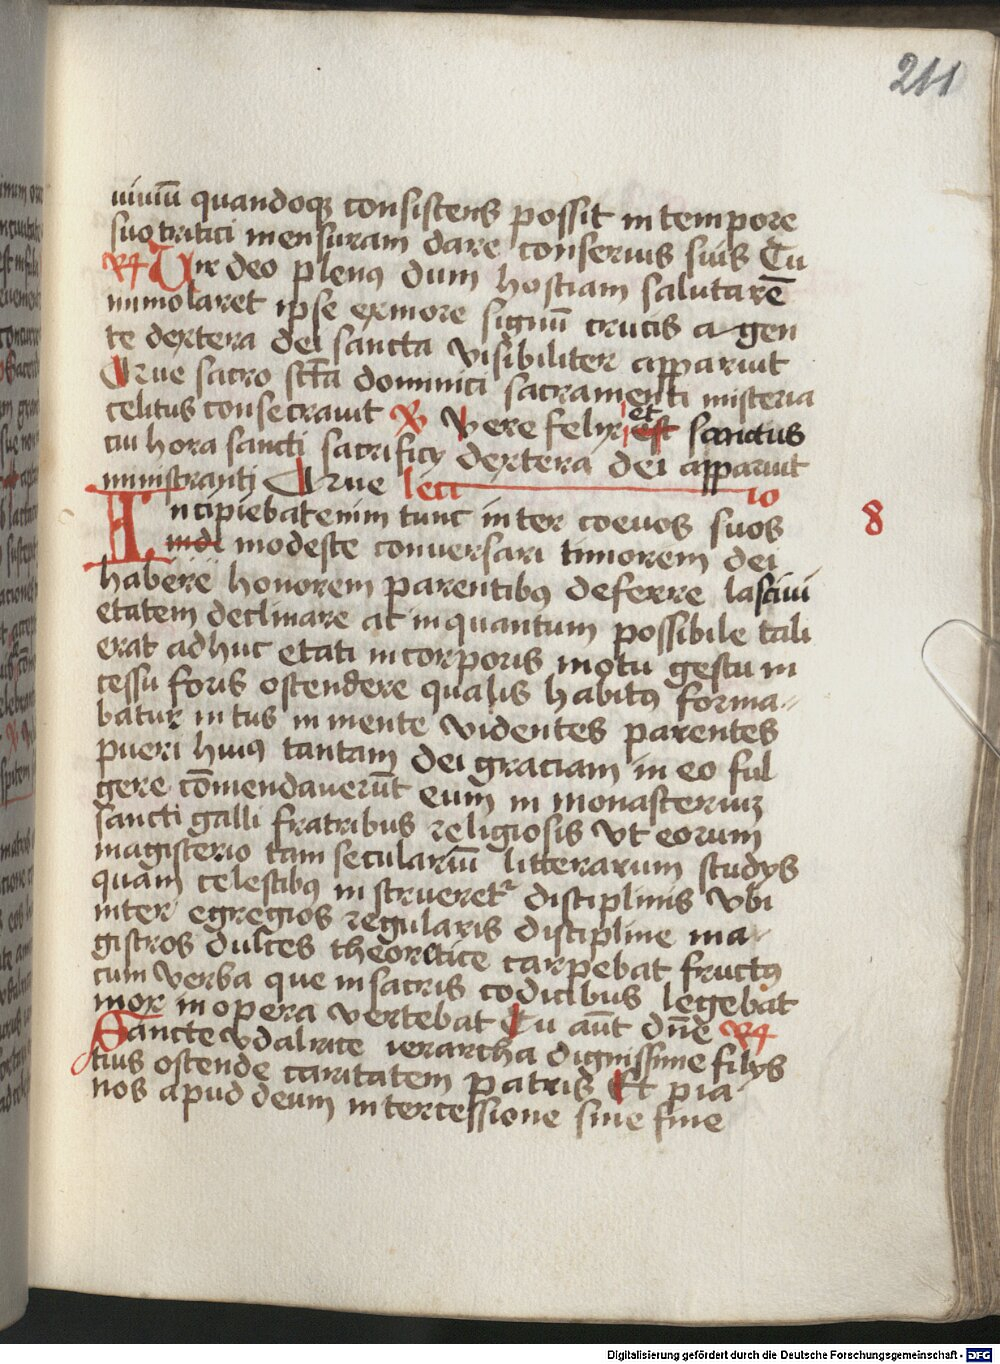 211
uiuiū quandoqꝫ consistens possit in tempore
suo tritici mensuram dare conseruis suis Tu
℟ Vir deo plenꝰ dum hostiam salutarē
immolaret ipse ex more signū crucis agen
te dextera dei sancta visibiliter apparuit
Que sacro sctā dominici sacramenti misteria
celitus consecrauit ℣ Vere felix et est sanctus
cui hora sancti sacrificÿ dextera dei apparuit
ministranti Que lectio
8
Incipiebat enim tunc inter coeuos suos
modeste conuersari timorem dei
habere honorem parentibꝰ deferre lasciui
etatem declinare ac inquantum possibile tali
erat adhuc etati in corporis motu gestu in
cessu foris ostendere qualis habitꝰ forma-
batur intus in mente videntes parentes
pueri huiꝰ tantam dei graciam in eo ful
gere cōmendauerūt eum in monasterium
sancti galli fratribus religiosis vt eorum
magisterio tam seculariū litterarum studÿs
quam celestibꝰ instrueretur disciplinis vbi
inter egregios regularis discipline ma-
gistros dulces theoretice carpebat fructꝰ
cum verba que in sacris codicibus legebat
mox in opera vertebat Tu aūt dn̄e ℟
Sancte vdalrice ierarcha dignissime filÿs
tius ostende caritatem patris Et pia
nos apud deum intercessione sine fine
Digitalisierung gefördert durch die Deutsche Forschungsgemeinschaft - DFG